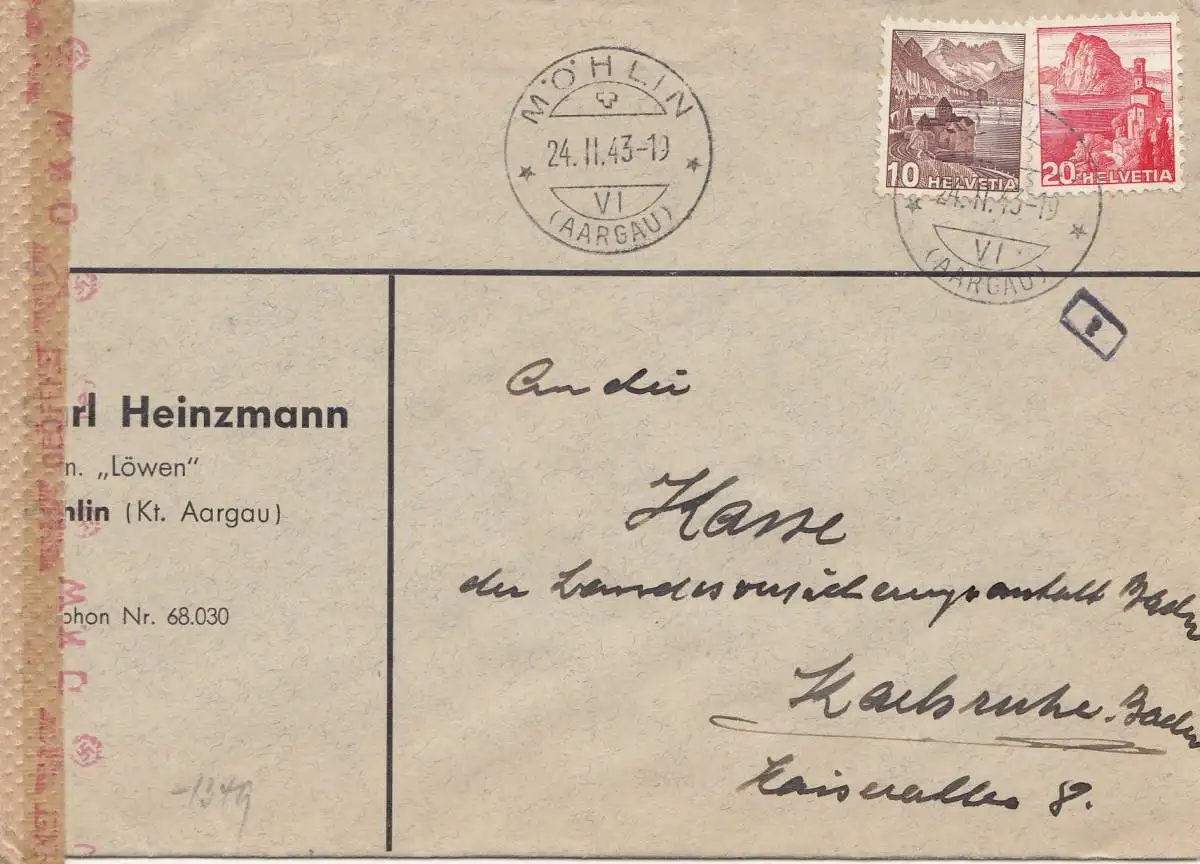 MÖHLIN
24.II.43-19
VI
(AARGAU)
10 HELVETIA
20 HELVETIA
24.II.43-19
VI
(AARGAU)
OKW
GEÖFFNET
OKW
rl Heinzmann
„Löwen“
hlin (Kt. Aargau)
phon Nr. 68.030
An die
Kasse
der Landesversicherungsanstalt Baden
Karlsruhe. Baden
Kaiserallee 8.